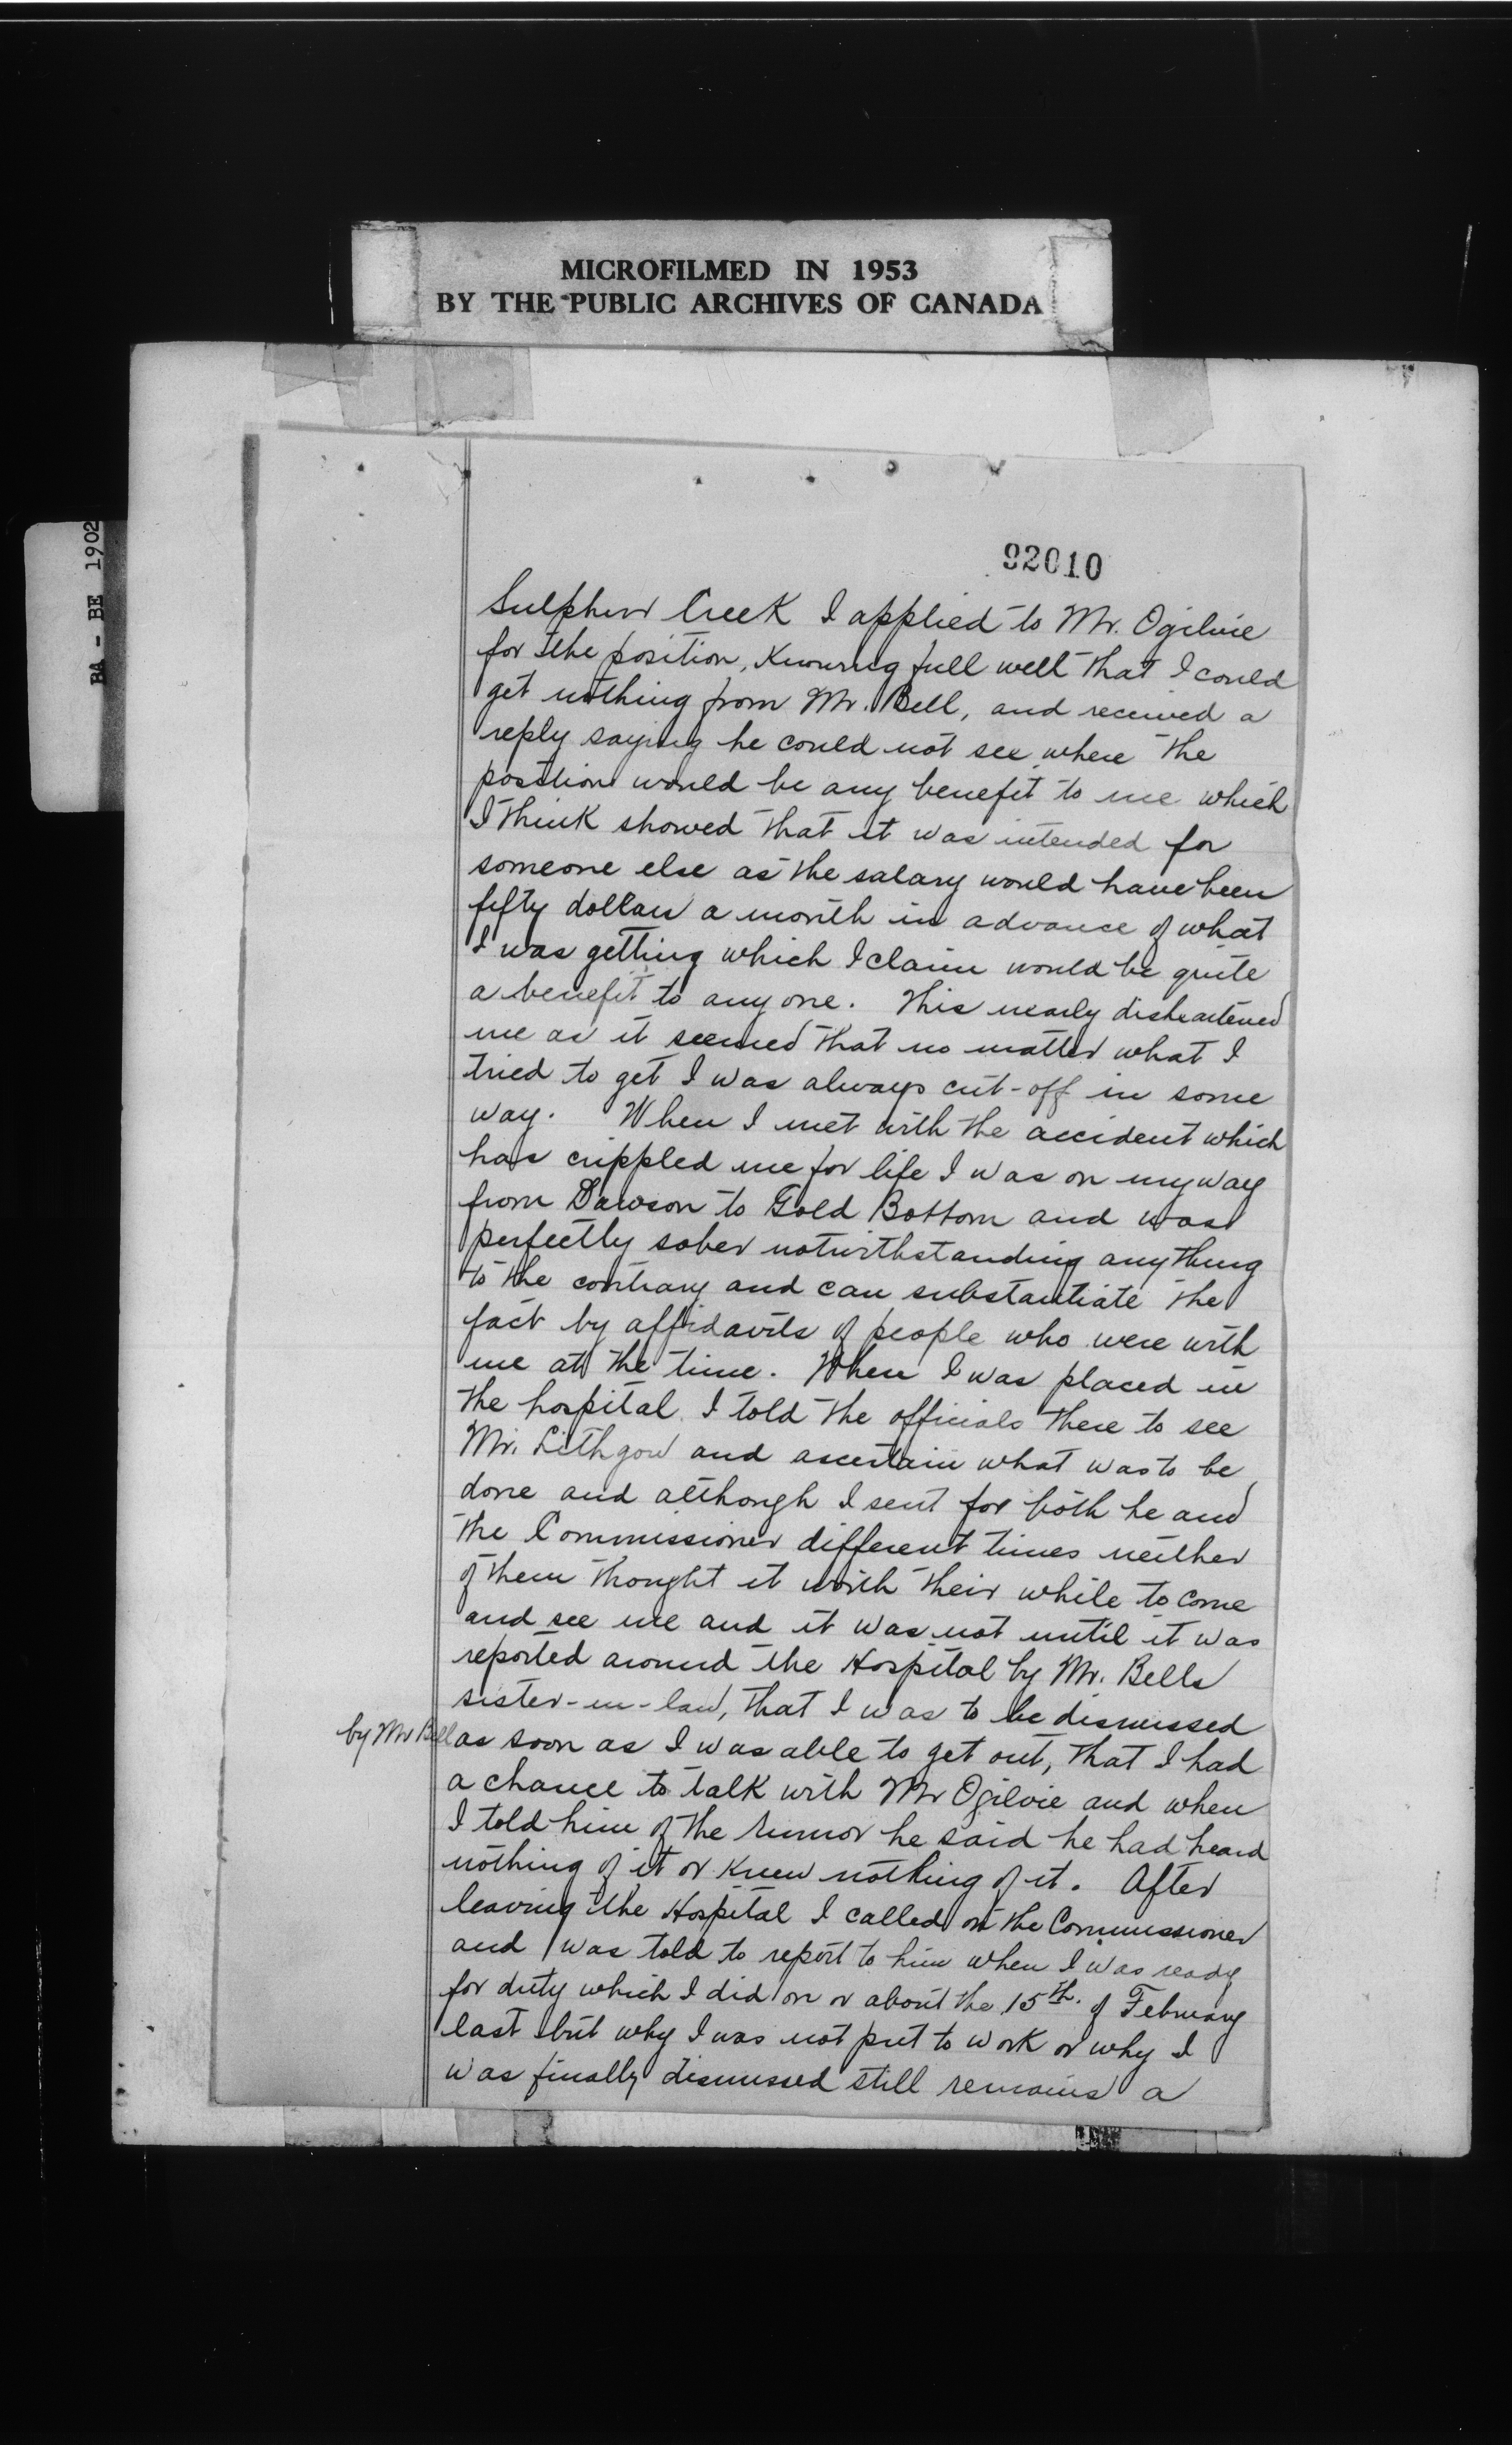 MICROFILMED IN 1953
BY THE PUBLIC ARCHIVES OF CANADA
BA - BE 1902
92010
Sulphur Creek I applied to Mr. Ogilvie
for the position, Knowing full well that I could
get nothing from Mr. Bell, and received a
reply saying he could not see where the
position would be any benefit to me which
I think showed that it was intended for
someone else as the salary would have been
fifty dollars a month in advance of what
I was getting which I claim would be quite
a benefit to any one. This nearly disheartened
me as it seemed that no matter what I
tried to get I was always cut-off in some
way. When I met with the accident which
has crippled me for life I was on my way
from Dawson to Gold Bottom and was
perfectly sober notwithstanding anything
to the contrary and can substantiate the
fact by affidavits of people who were with
me at the time. When I was placed in
the hospital I told the officials there to see
Mr. Lithgow and ascertain what was to be
done and although I sent for both he and
the Commissioner different times neither
of them thought it worth their while to come
and see me and it was not until it was
reported around the Hospital by Mr. Bells
sister-in-law, that I was to be dismissed
by Mr Bell as soon as I was able to get out, that I had
a chance to talk with Mr Ogilvie and when
I told him of the rumor he said he had heard
nothing of it or knew nothing of it. After
leaving the Hospital I called on the Commissioner
and was told to report to him when I was ready
for duty which I did on or about the 15th. of February
last but why I was not put to work or why I
was finally dismissed still remains a